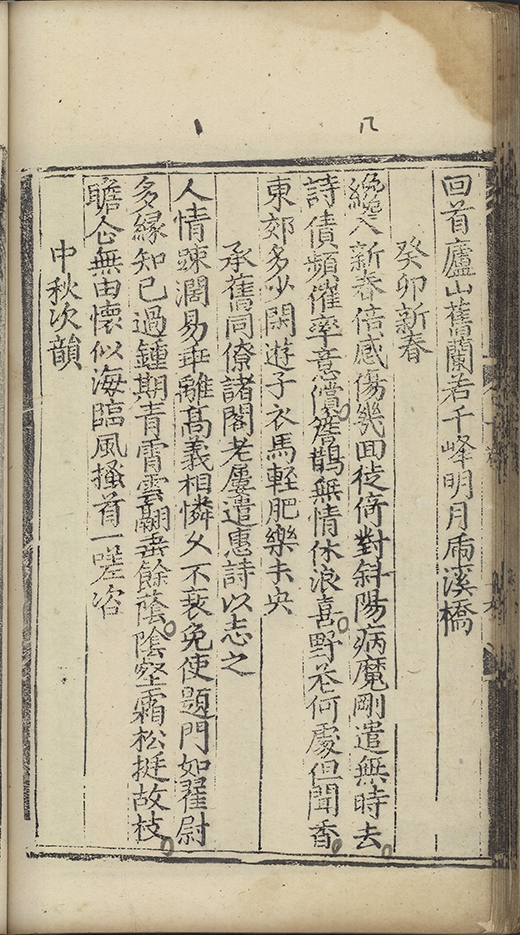 回首廬山舊蘭若千峰明月虎溪橋
癸卯新春
纔入新春倍感傷幾回徙倚對斜陽病魔剛遣無時去
詩債頻催率意償簷鵲無情休浪喜野花何處但聞香
東郊多少閑遊子衣馬輕肥樂未央
承舊同僚諸閣老屢遣惠詩以志之
人情踈濶易乖離高義相憐久不衰免使題門如翟尉
多緣知已過鍾期青霄雲翮垂餘蔭陰壑霜松挺故枝
瞻企無由懷似海臨風搔首一嗟咨
中秋次韻